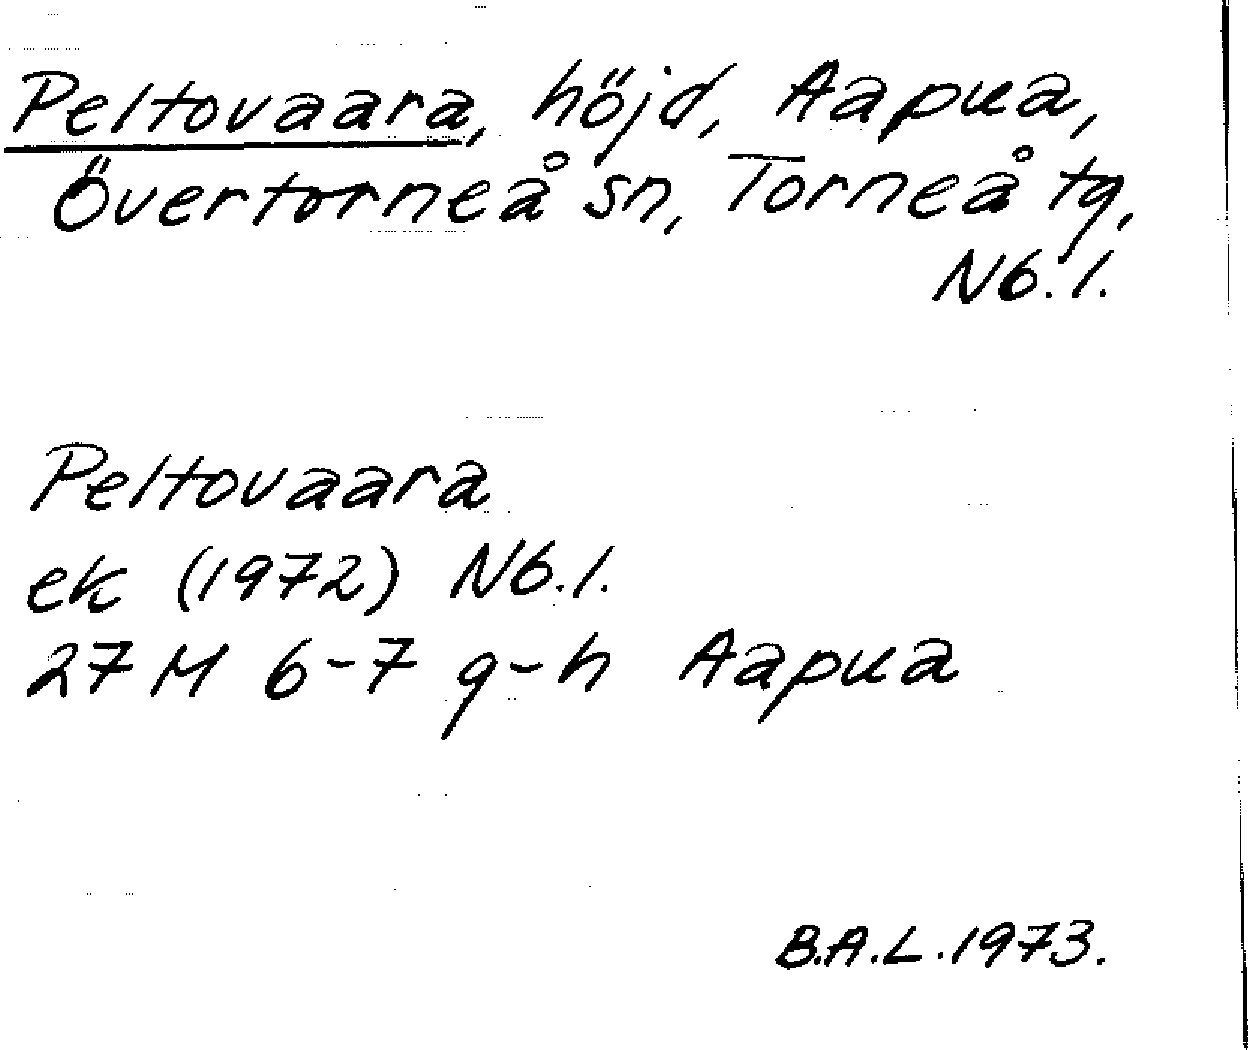 Peltovaara, höjd, Aapua,
Övertorneå sn, Torneå tg,
Nb. l.
Peltovaara
ek (1972) Nb. l.
27 M 6-7 g-h Aapua
B.A.L. 1973.